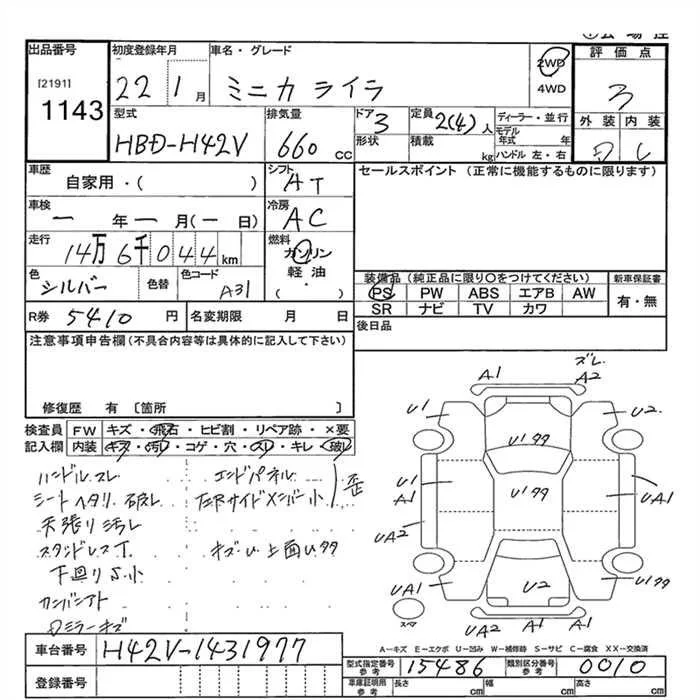 出品番号
[2191]
1143
初度登録年月
22 1月
車名・グレード
ミニカ ライラ
2WD
4WD
評価点
3
外装 内装
D C
型式
HBD-H42V
排気量
660 cc
ドア
3
形状
定員
2(4)人
積載
kg
ディーラー・並行
モデル年式 年
ハンドル 左・右
車歴
自家用・( )
シフト
AT
セールスポイント (正常に機能するものに限ります)
車検
一年一月(一日)
冷房
AC
走行
14万6千044km
燃料
ガソリン
軽油
・
( )
色
シルバー
色替
色コード
A31
装備品(純正品に限り○をつけてください)
PS PW ABS エアB AW
SR ナビ TV カワ
新車保証書
有・無
R券 5410円
名変期限 月 日
後日品
注意事項申告欄(不具合内容等は具体的に記入して下さい)
修復歴 有 〔箇所 〕
検査員記入欄
FW キズ・飛石・ヒビ割・リペア跡・×要
内装 キズ・汚レ・コゲ・穴・スレ・キレ・破レ
ハンドルスレ
シートヘタリ 破レ
天張り汚レ
スタッドレスT.
下廻りS小
カンバンアト
Dミラーキズ
エンドパネル
左Rサイドメンバー小 歪
キズ・U 上面Uタタ
ズレ
A1 A2
U1 U2
U1タタ
U1 A1
U1タタ
UA1
UA2
UA1
U2
U1タタ
UA2 A1 A1
スマ
A-キズ E-エクボ U-凹み W-補修跡 S-サビ C-腐食 XX-交換済
車台番号 H42V-1431977
型式指定番号 参考 15486
類別区分番号 参考 0010
登録番号
車庫証明用 参考
長さ cm 幅 cm 高さ cm